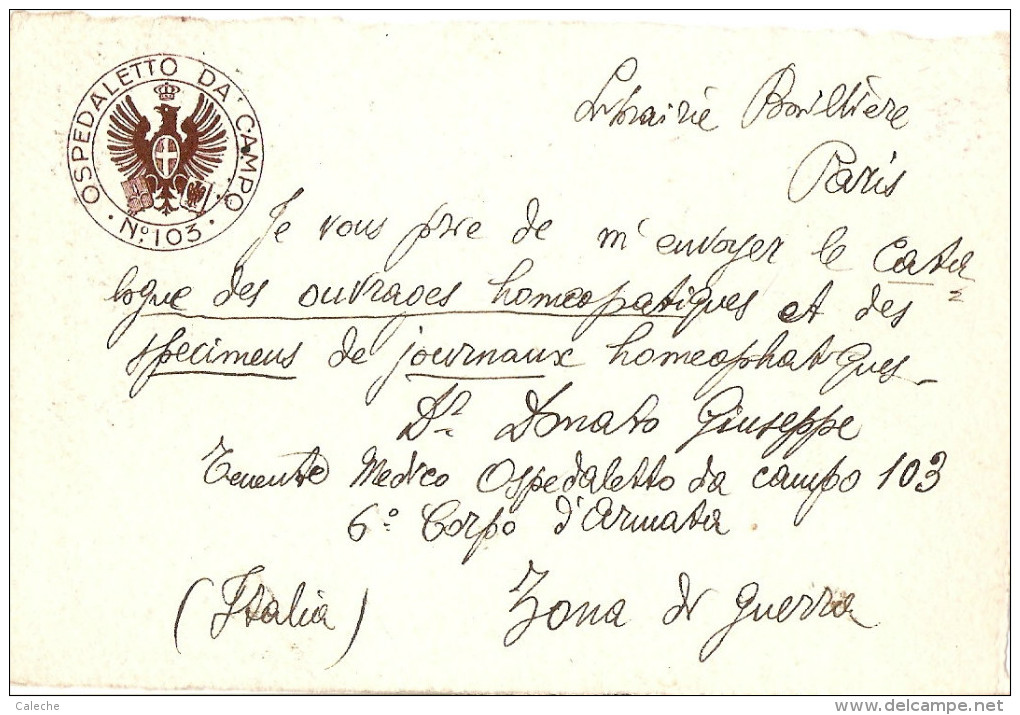 OSPEDALETTO DA CAMPO
· Nº 103 ·
Librairie Baillière
Paris
Je vous prie de m'envoyer le Cata
logue des ouvrages homeopatiques et des
specimens de journaux homeophatiques_
Dr. Donato Giuseppe
Tenente Medico Ospedaletto da campo 103
6º Corpo d'Armata
(Italia) Zona di guerra
Caleche
delcampe.net